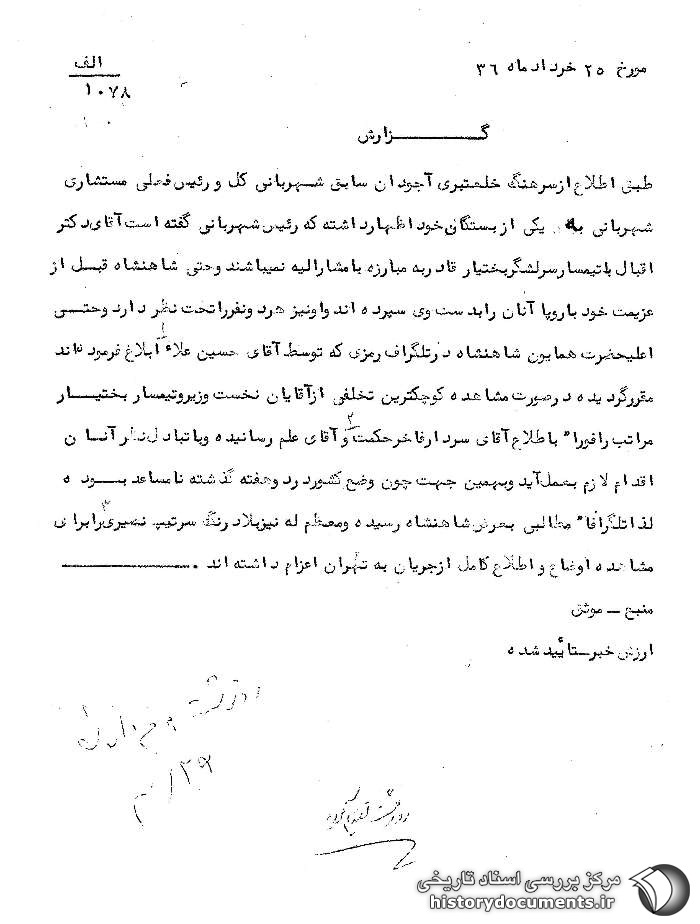 الف
۱۰۷۸
مورخ ۲۵ خرداد ماه ۳۶
گــــزارش
طبق اطلاع از سرهنگ خلعتبری آجودان سابق شهربانی کل و رئیس فعلی مستشاری
شهربانی به یکی از بستگان خود اظهار داشته که رئیس شهربانی گفته است آقای دکتر
اقبال با تیمسار سرلشگر بختیار قادر به مبارزه با مشارالیه نمیباشند و حتی شاهنشاه قبل از
عزیمت خود باروپا آنان را بدست وی سپرده اند و او نیز هر دو نفر را تحت نظر دارد و حتــی
اعلیحضرت همایون شاهنشاه در تلگراف رمزی که توسط آقای حسین علاء ۱ ابلاغ فرموده اند
مقرر گردیده در صورت مشاهده کوچکترین تخلفی از آقایان نخست وزیر و تیمسار بختیــار
مراتب را فورا" باطلاع آقای سردار فاخر حکمت ۲ و آقای علم رسانیده و با تبادل نظر آنــان
اقدام لازم بعمل آید و بهمین جهت چون وضع کشور در دو هفته گذشته نامساعد بــوده
لذا تلگرافا" مطالبی بعرض شاهنشاه رسیده و معظم له نیز بلادرنگ سرتیپ نصیری ۳ را برای
مشاهده اوضاع و اطلاع کامل از جریان به تهران اعزام داشته اند .
منبع ـ موثق
ارزش خبر ـ تأیید شده
۲۹/۳
مرکز بررسی اسناد تاریخی
historydocuments.ir